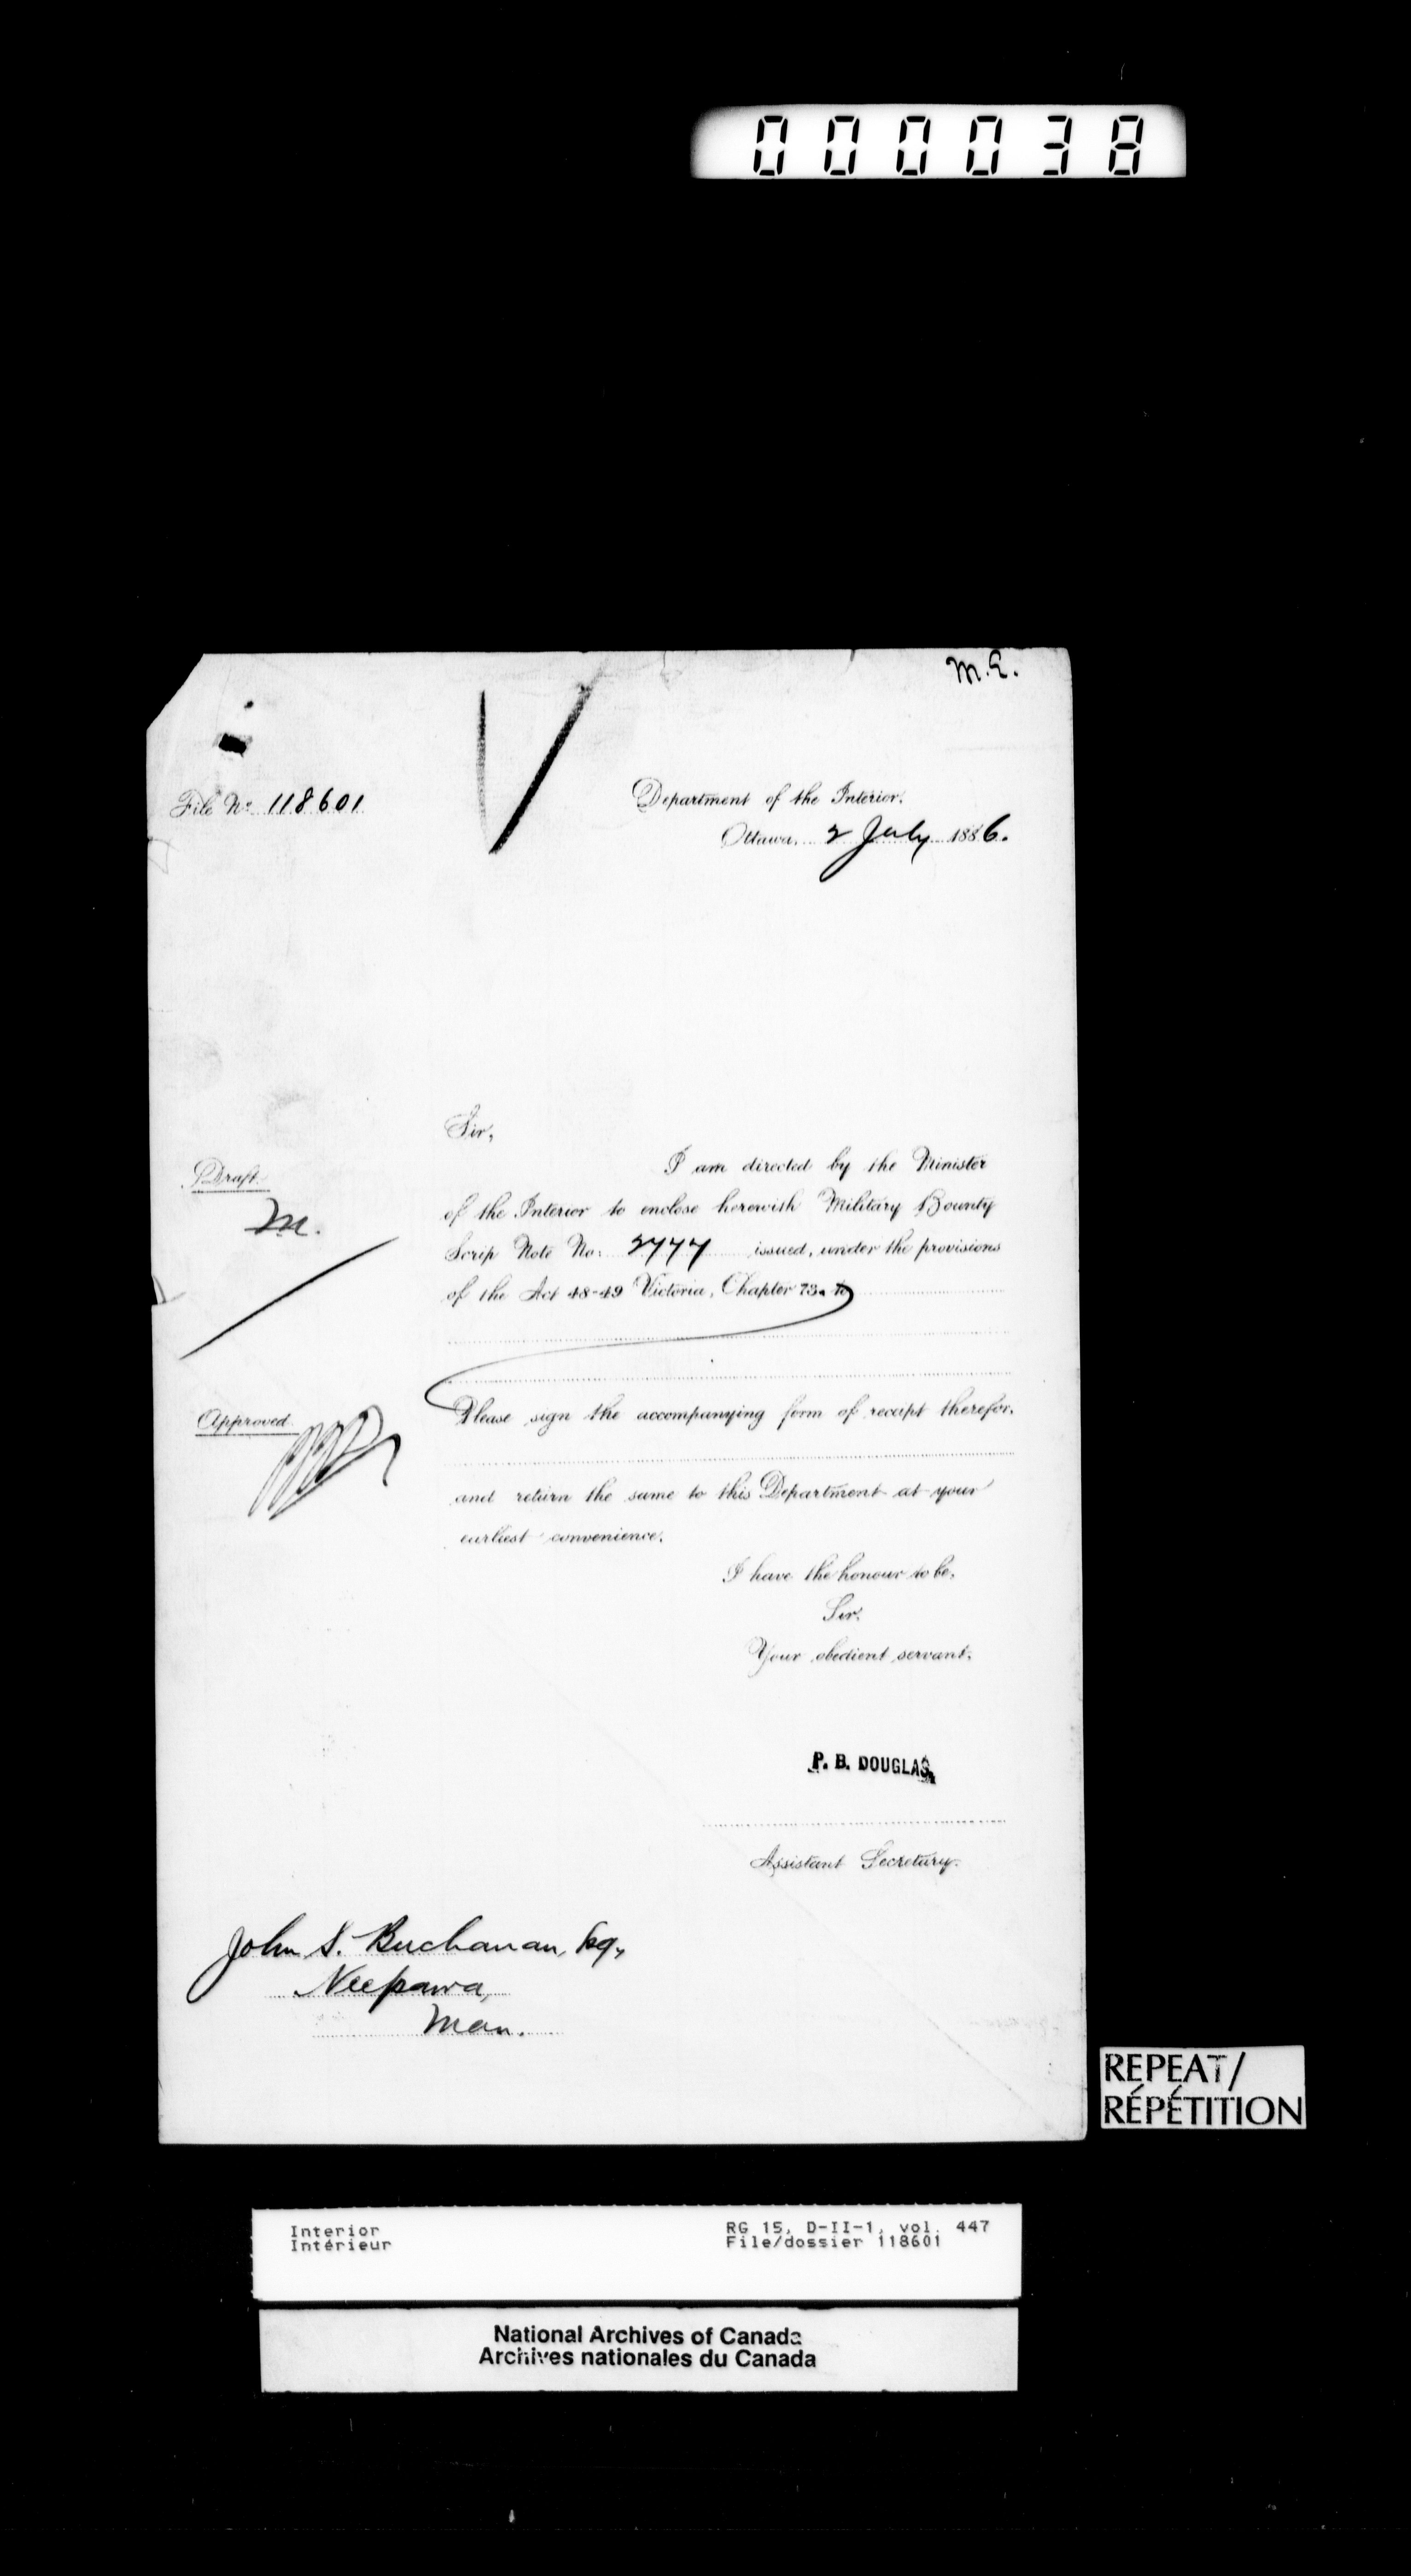 000038
M.E.
File No. 118601
Department of the Interior.
Ottawa, 2 July 1886.
Sir,
Draft.
I am directed by the Minister
M.
of the Interior to enclose herewith Military Bounty
Scrip Note No. 2777 issued, under the provisions
of the Act 48-49 Victoria, Chapter 73. to
Approved.
Please sign the accompanying form of receipt therefor.
and return the same to this Department at your
earliest convenience.
I have the honour to be,
Sir,
Your obedient servant,
P. B. DOUGLAS,
Assistant Secretary.
John S. Buchanan, Esq.,
Neepawa,
Man.
REPEAT/
RÉPÉTITION
Interior
Intérieur
RG 15, D-II-1, vol. 447
File/dossier 118601
National Archives of Canada
Archives nationales du Canada